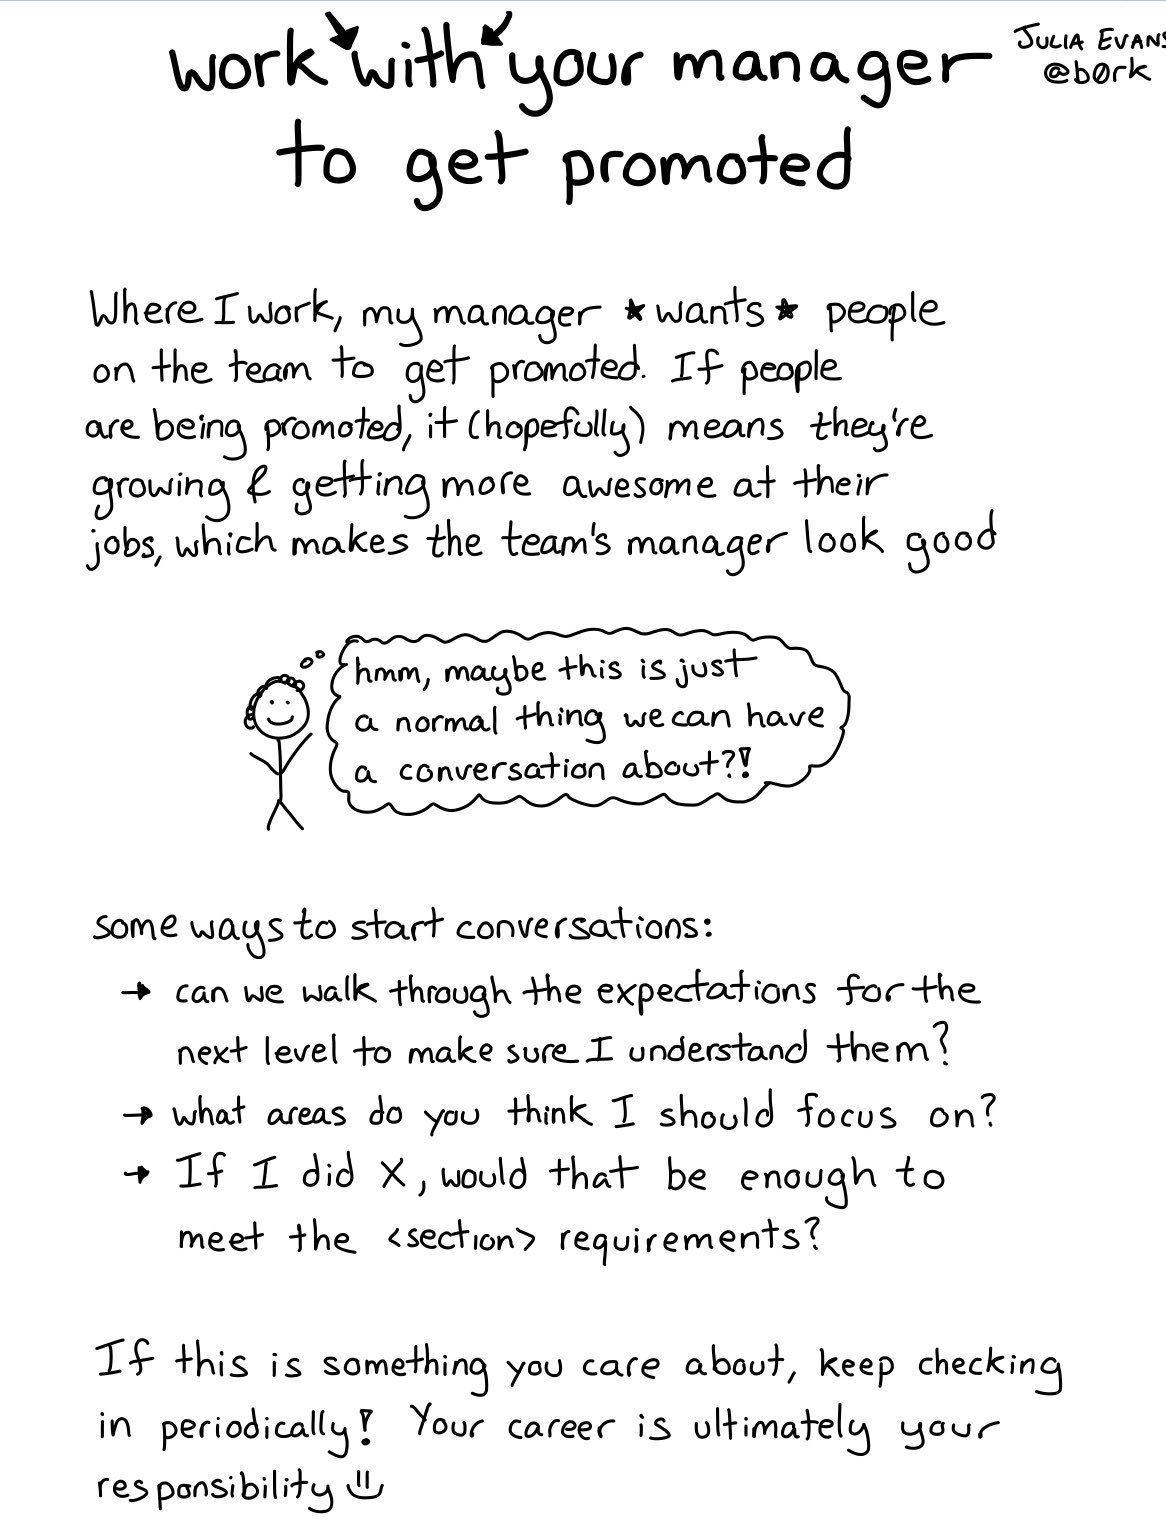 work with your manager
to get promoted
JULIA EVANS
@b0rk
Where I work, my manager *wants* people
on the team to get promoted. If people
are being promoted, it (hopefully) means they're
growing & getting more awesome at their
jobs, which makes the team's manager look good
hmm, maybe this is just
a normal thing we can have
a conversation about?!
some ways to start conversations:
→ can we walk through the expectations for the
next level to make sure I understand them?
→ what areas do you think I should focus on?
→ If I did X, would that be enough to
meet the <section> requirements?
If this is something you care about, keep checking
in periodically! Your career is ultimately your
responsibility